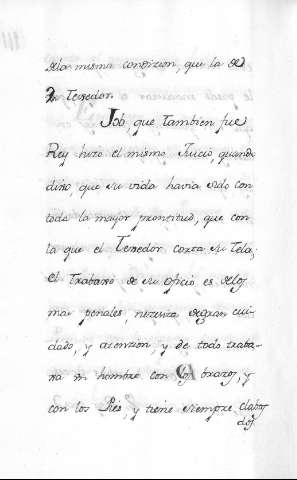 dela misma condizion, que la de
Un Texedor.
Job, que tambien fue
Rey hizo el mismo Juicio, quando
dixo que su vida havia sido con
toda la mayor prontitud, que con
la que el Texedor corta su Tela;
el Trabaxo de su oficio es delos
mas penales, nezesita degran cui-
dado, y atenzion, y de todo traba-
xa un hombre con los brazos, y
con los Pies, y tiene siempre clabos
dos